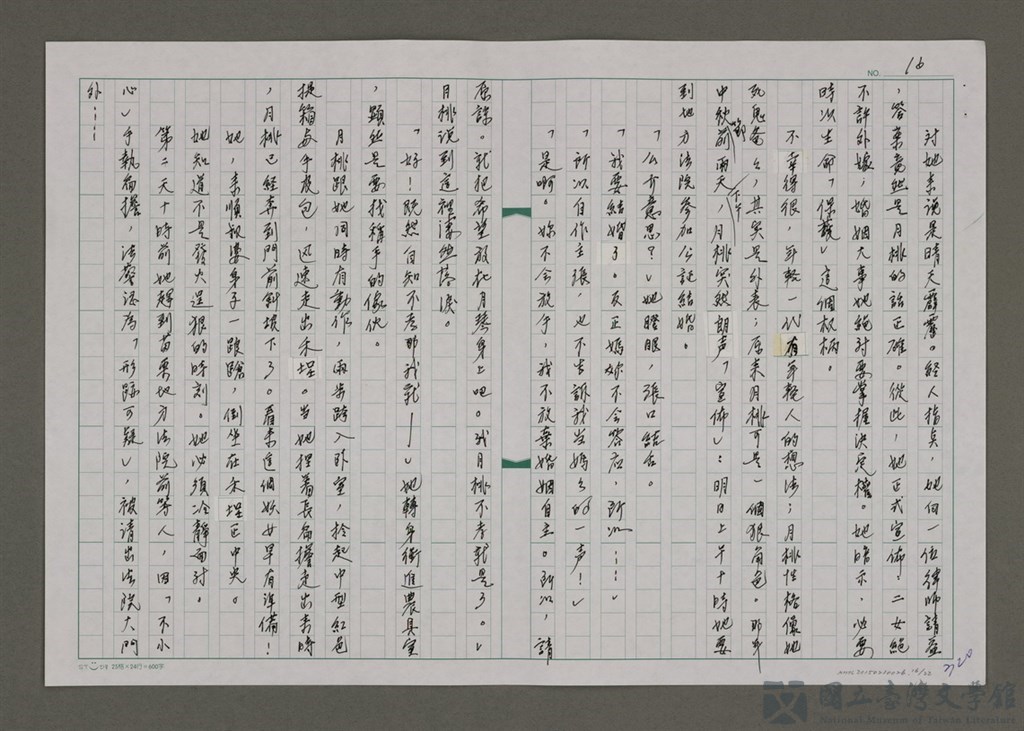 NO. 16
對她來說是晴天霹靂。經人指點,她向一位律師請益
,答案竟然是月桃的話正確。從此,她正式宣佈:二女絕
不許外嫁;婚姻大事她絕對要掌握決定權。她暗示,必要
時以生命「保護」這個權柄。
不幸得很,年輕一代有年輕人的想法;月桃性格像她
死鬼爸爸,其笑是外表;原來月桃可是一個狠角色。那年
中秋節前兩天下午,月桃突然朗声「宣佈」:明日上午十時她要
到地方法院參加公証結婚。
「么个意思?」她瞪眼,張口結舌。
「我要結婚了。反正媽妳不会答应,所以……」
「所以自作主張,也不告訴我当媽的一声!」
「是啊。妳不会放手,我不放棄婚姻自主。所以,請
原諒。就把希望放在月琴身上吧。我月桃不孝就是了。」
月桃说到這裡潸然落淚。
「好!既然自知不孝那我就——」她轉身衝進農具室
,顯然是要找稱手的傢伙。
月桃跟她同時有動作,兩步跨入臥室,拎起中型紅色
提箱与手提包,迅速走出禾埕。当她捏著長扁擔走出來時
,月桃已經奔到門前斜坡下了。看來這個妖女早有準備!
她,束順報婆身子一踉蹌,倒坐在禾埕正中央。
她知道不是發火逞狠的時刻。她必須冷靜面对。
第二天十時前她趕到苗栗地方法院前等人,因「不小
心」手執扁擔,法警認為「形跡可疑」,被請出法院大門
外……
25格×24行=600字
220
國立臺灣文學館
National Museum of Taiwan Literature